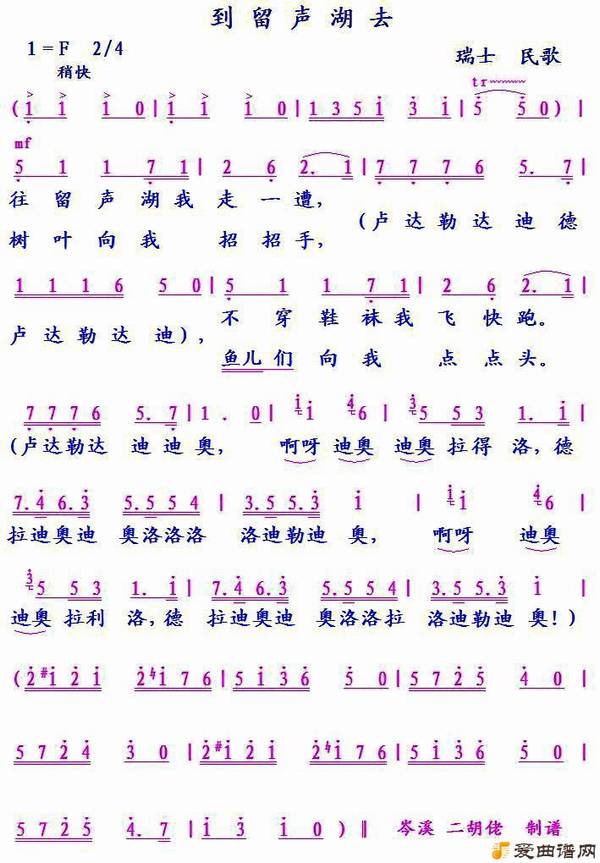 到留声湖去
1=F 2/4 瑞士 民歌
稍快
tr
(1 1 1 0 | 1 1 1 0 | 1 3 5 1 3 1 | 5 5 0) |
mf
5 1 1 7 1 | 2 6 2. 1 | 7 7 7 6 5. 7 |
往留声湖我走一遭, (卢达勒达迪德
树叶向我 招招手,
1 1 1 6 5 0 | 5 1 1 7 1 | 2 6 2. 1 |
卢达勒达迪), 不穿鞋袜我飞快跑。
鱼儿们向我 点点头。
7 7 7 6 5. 7 | 1 . 0 | 1 i 4 6 | 3 5 5 3 1. i |
(卢达勒达 迪迪奥, 啊呀 迪奥 迪奥 拉得 洛,德
7. 4 6. 3 5. 5 5 4 | 3. 5 5. 3 i | 1 i 4 6 |
拉迪奥迪 奥洛洛洛 洛迪勒迪 奥, 啊呀 迪奥
3 5 5 3 1. i | 7. 4 6. 3 5. 5 5 4 | 3. 5 5. 3 i |
迪奥 拉利 洛,德 拉迪奥迪 奥洛洛拉 洛迪勒迪奥!)
(2 #1 2 1 | 2 4 i 7 6 | 5 i 3 6 | 5 0 | 5 7 2 5 4 0 |
5 7 2 4 3 0 | 2 #1 2 1 | 2 4 i 7 6 | 5 i 3 6 5 0 |
5 7 2 5 4. 7 | i 3 i 0) ‖ 岑溪 二胡佬 制谱
爱曲谱网